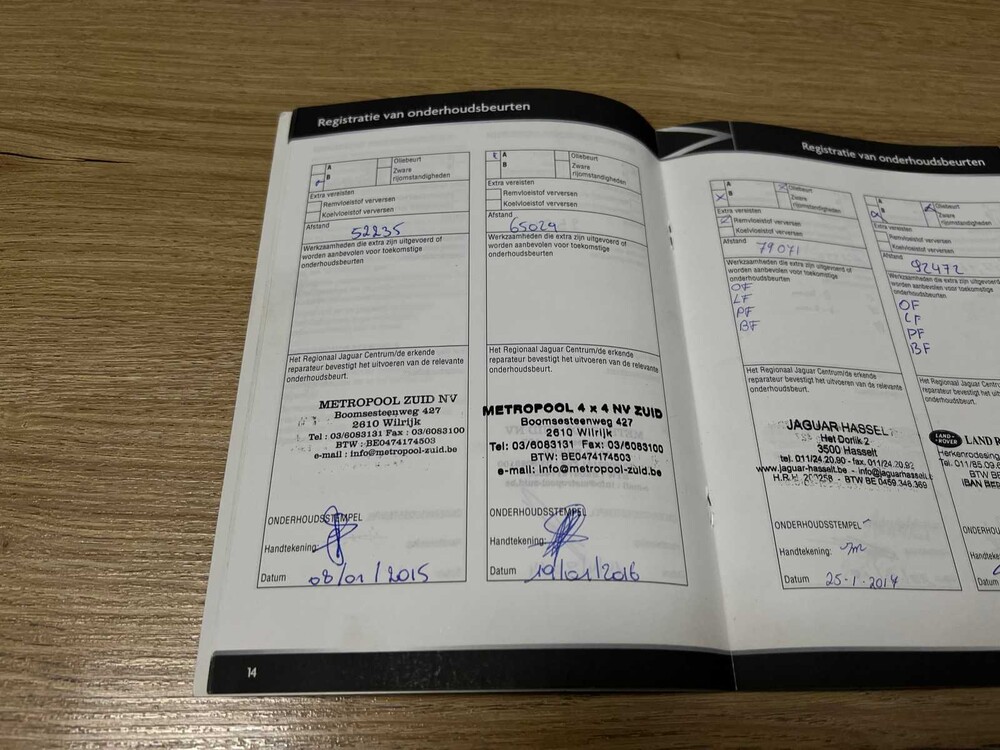 Registratie van onderhoudsbeurten
A
B
Oliebeurt
Zware
rijomstandigheden
Extra vereisten
Remvloeistof verversen
Koelvloeistof verversen
Afstand
52235
Werkzaamheden die extra zijn uitgevoerd of
worden aanbevolen voor toekomstige
onderhoudsbeurten
Het Regionaal Jaguar Centrum/de erkende
reparateur bevestigt het uitvoeren van de relevante
onderhoudsbeurt.
METROPOOL ZUID NV
Boomsesteenweg 427
2610 Wilrijk
Tel : 03/6083131 Fax : 03/6083100
BTW : BE0474174503
e-mail : info@metropool-zuid.be
ONDERHOUDSSTEMPEL
Handtekening:
Datum 08/01/2015
A
B
Oliebeurt
Zware
rijomstandigheden
Extra vereisten
Remvloeistof verversen
Koelvloeistof verversen
Afstand
65029
Werkzaamheden die extra zijn uitgevoerd of
worden aanbevolen voor toekomstige
onderhoudsbeurten
Het Regionaal Jaguar Centrum/de erkende
reparateur bevestigt het uitvoeren van de relevante
onderhoudsbeurt.
METROPOOL 4 x 4 NV ZUID
Boomsesteenweg 427
2610 Wilrijk
Tel: 03/6083131 Fax: 03/6083100
BTW: BE0474174503
e-mail: info@metropool-zuid.be
ONDERHOUDSSTEMPEL
Handtekening:
Datum 19/01/2016
14
Registratie van onderhoudsbeurten
A
B
Oliebeurt
Zware
rijomstandigheden
Extra vereisten
Remvloeistof verversen
Koelvloeistof verversen
Afstand
79071
Werkzaamheden die extra zijn uitgevoerd of
worden aanbevolen voor toekomstige
onderhoudsbeurten
OF
LF
PF
BF
Het Regionaal Jaguar Centrum/de erkende
reparateur bevestigt het uitvoeren van de relevante
onderhoudsbeurt.
JAGUAR HASSEL
Het Dorlik 2
3500 Hasselt
tel. 011/24.20.90 - fax. 011/24.20.92
www.jaguar-hasselt.be - info@jaguarhasselt.b
BTW BE 0459.348.369
ONDERHOUDSSTEMPEL
Handtekening:
Datum 25-1-2017
A
B
Oliebeurt
Zware
rijomstandigheden
Extra vereisten
Remvloeistof verversen
Koelvloeistof verversen
Afstand
92472
Werkzaamheden die extra zijn uitgevoerd
worden aanbevolen voor toekomstige
onderhoudsbeurten
OF
LF
PF
BF
Het Regionaal Jaguar Centrum
reparateur bevestigt het uitvoeren
onderhoudsbeurt.
LAND-ROVER
LAND R
Herkenrodesing
Tel. 011/85.09.6
BTW B
IBAN BE
ONDERHOU
Handteken
Datum